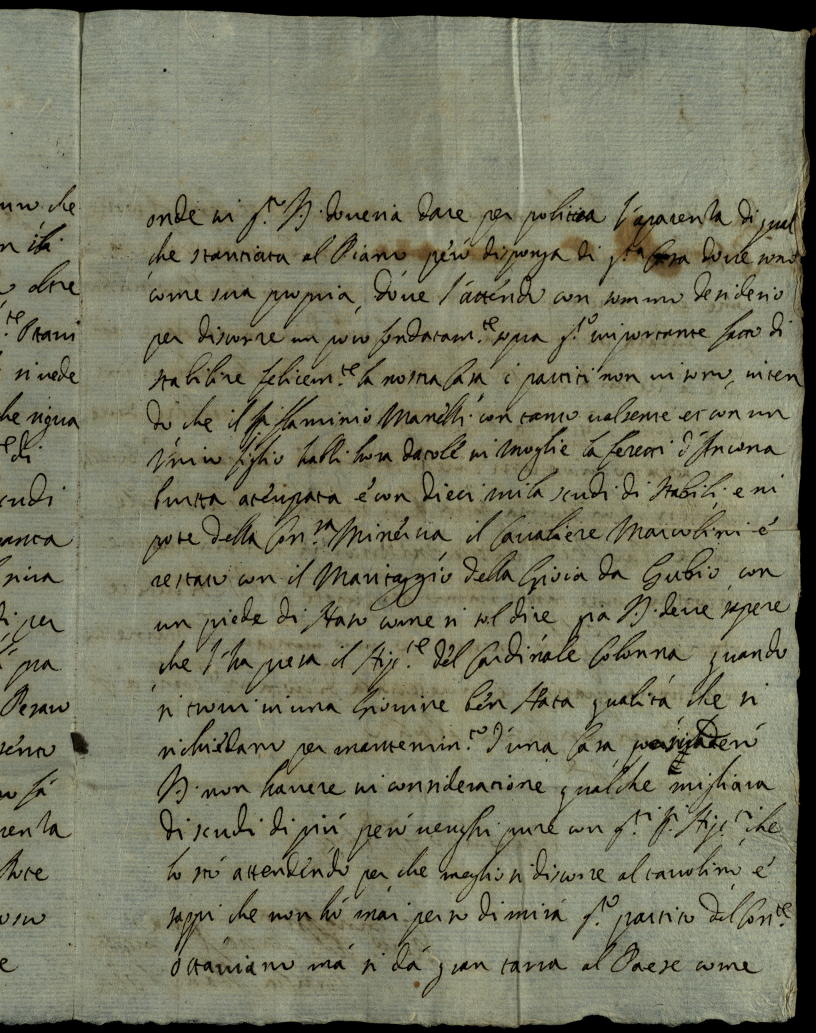 uno che
oltre
si vede
che rigua
di
scudi
di per
Pesaro
sù
Conte
onde in q.to D. doveria dare per politica l'aparenza di qual
che stantiata al Piano però disponga di q.ta Casa dove sono
come sua propria, dove l'attendo con sommo desiderio
per discorre un poco fondatam.te sopra q.to importante fatto di
stabilire felicem.te la nostra Casa i partiti non ui sono, inten
do che il Sr flaminio Marelli con tanto ualsente et con un
Unico figlio habbi hora datoli in moglie la feretti d'Ancona
brutta attempata è con dieci mila scudi di stabili e ni
pote della Con.sa Minervia il Cavaliere Marcolini è
restato con il Maritaggio della Gioia da Gubio con
un piede di Naso come si sol dire già D. deve sapere
che l'ha presa il Nip.te del Cardinale Colonna quando
si trovi in una Giovine ben Nata qualità che si
richiedano per mantenim.to d'una Casa
D. non havere in consideratione qualche migliara
di scudi di più però venghi pure con q.ti Sr. Nip.ti che
lo stò attendendo per che meglio si discorre al tavolino è
sappi che non hò mai perso di mira q.to partito del Con.te
Ottaviano mà si dà gran tarra al Paese come